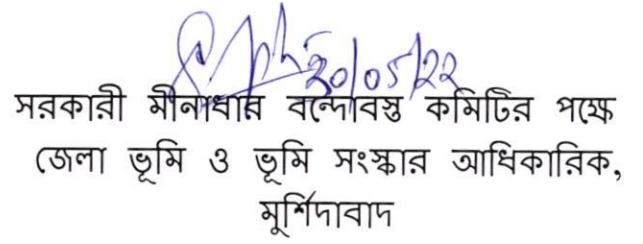 20/05/22
সরকারী মীনাধার বন্দোবস্ত কমিটির পক্ষে
জেলা ভূমি ও ভূমি সংস্কার আধিকারিক,
মুর্শিদাবাদ